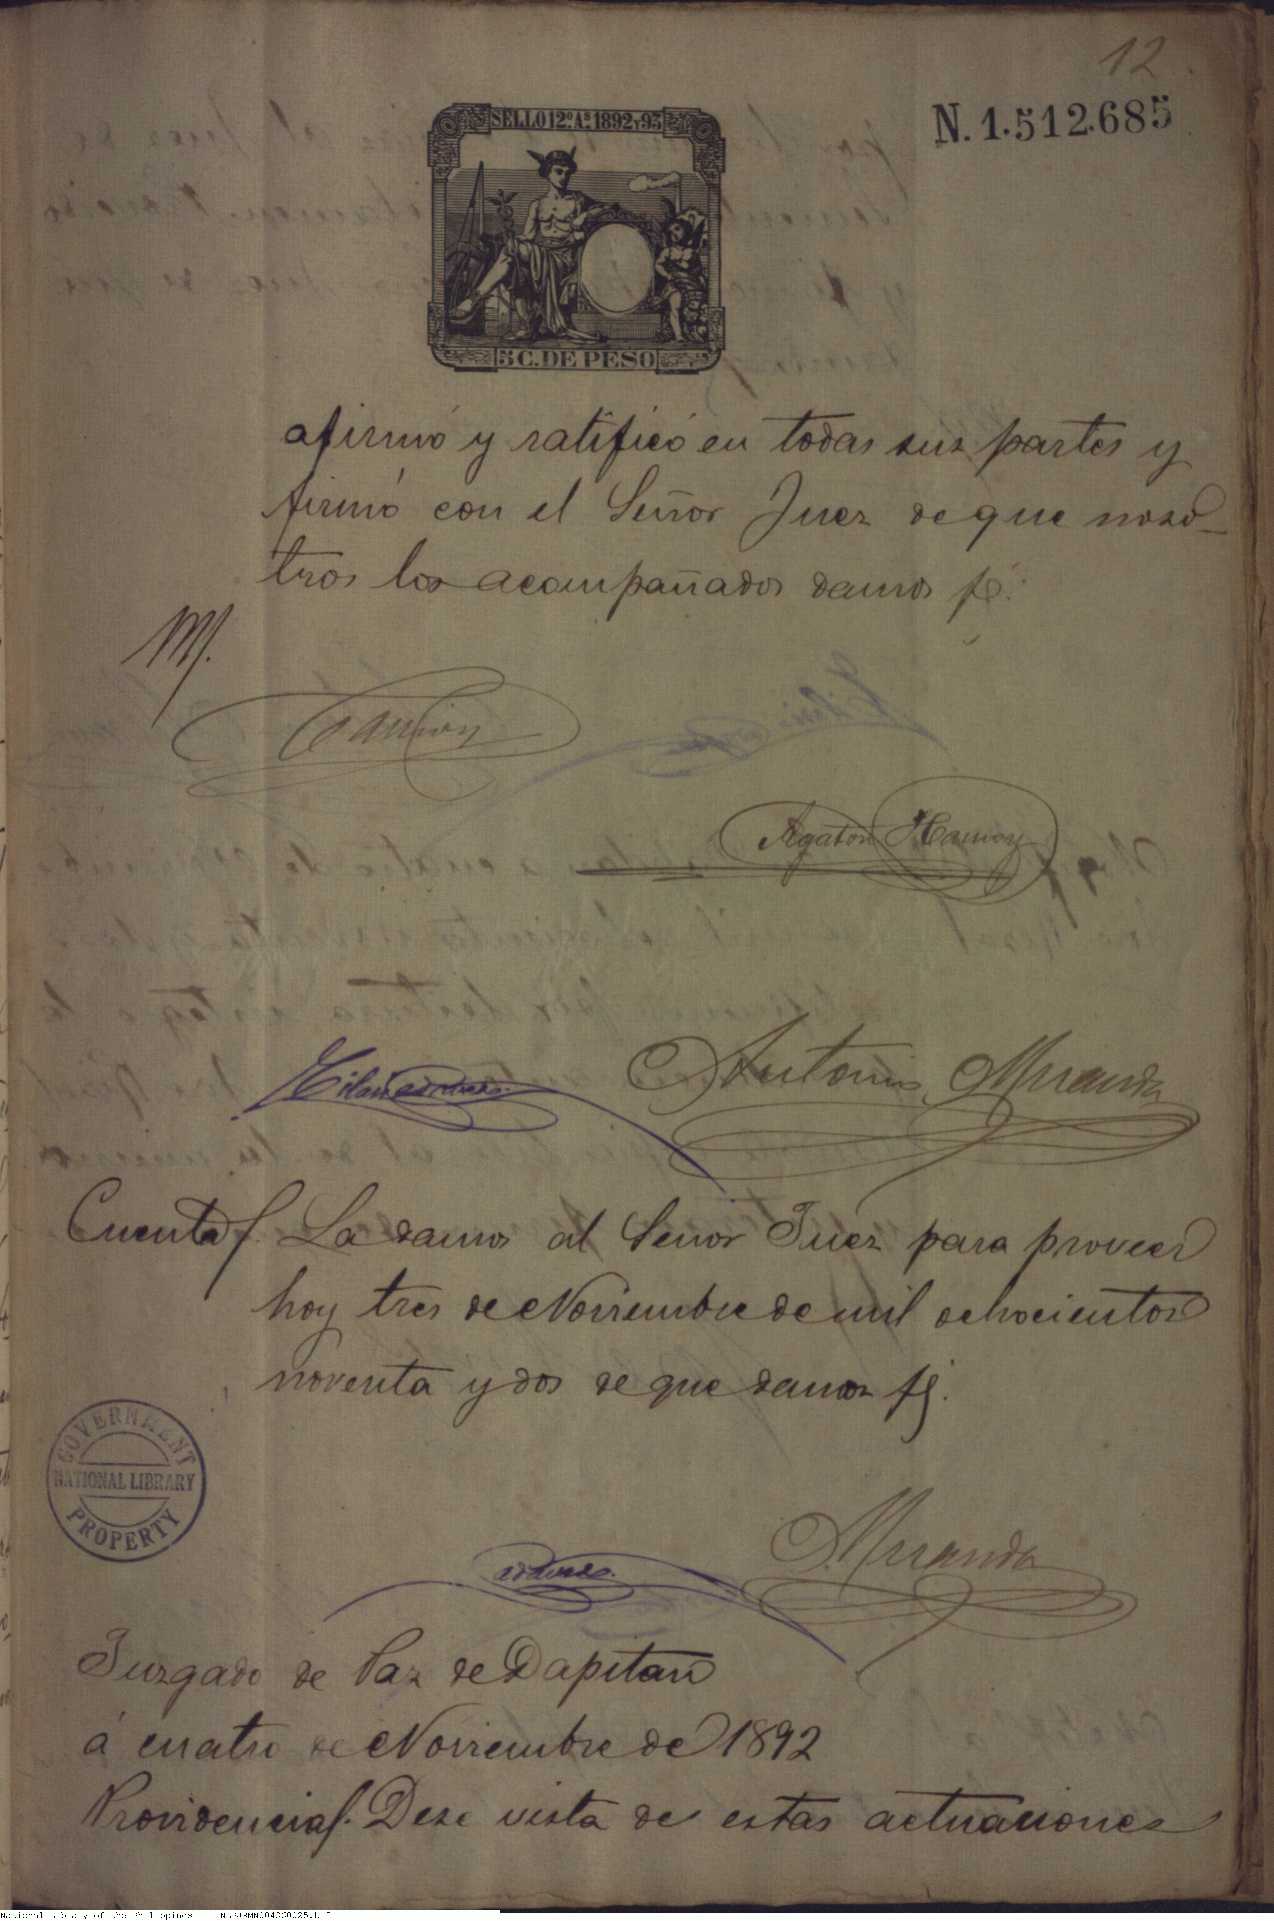 12
SELLO 12º. Aˢ. 1892 Y 93
N. 1.512.685
5 C. DE PESO
afirmó y ratificó en todas sus partes y
firmó con el Señor Juez de que noso-
tros los acompañados damos fé.
M.
Carreon
Agaton Hamoy
Hilario
Antonio Miranda
Cuenta/. La damos al Señor Juez para proveer
hoy tres de Noviembre de mil ochocientos
noventa y dos de que damos fé.
GOVERNMENT
NATIONAL LIBRARY
PROPERTY
Miranda
Juzgado de Paz de Dapitan
á cuatro de Noviembre de 1892
Providencia/. Dese vista de estas actuaciones
National Library of the Philippines